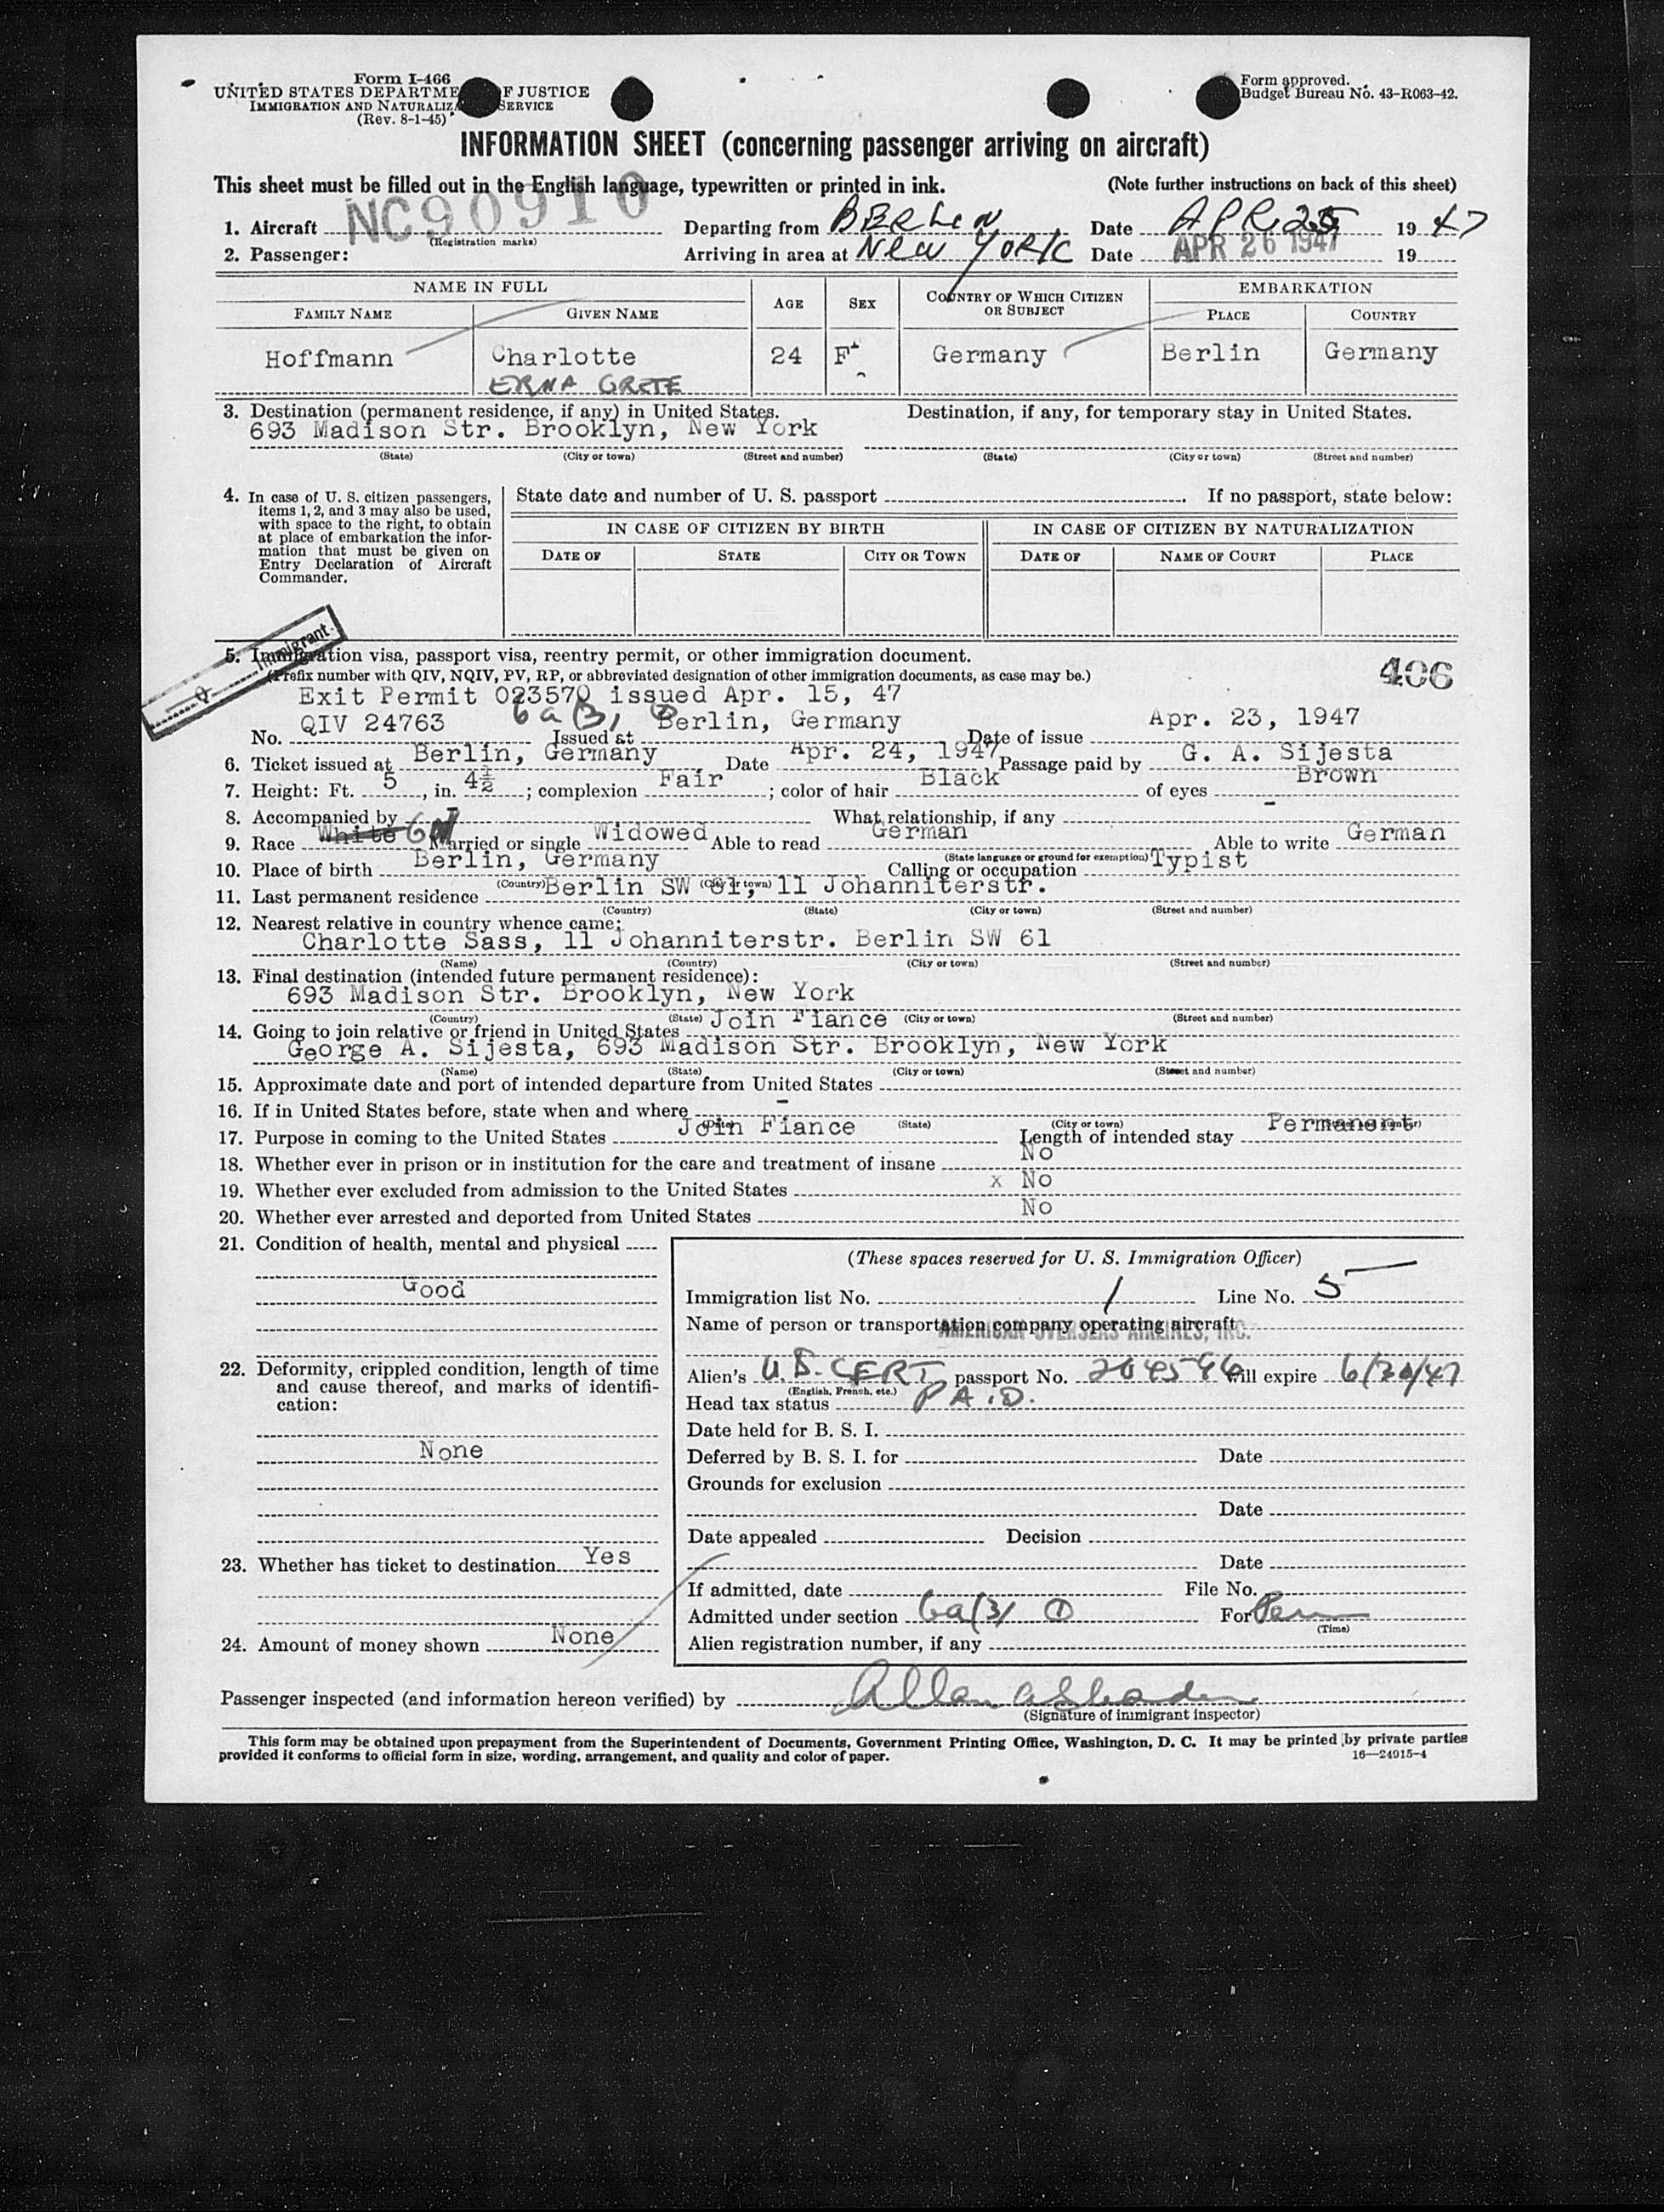 Form I-466
UNITED STATES DEPARTME F JUSTICE
IMMIGRATION AND NATURALIZA SERVICE
(Rev. 8-1-45)
Form approved.
Budget Bureau No. 43-R063-42.
INFORMATION SHEET (concerning passenger arriving on aircraft)
This sheet must be filled out in the English language, typewritten or printed in ink. (Note further instructions on back of this sheet)
1. Aircraft NC90910 Departing from BERLIN Date APR 25 19 47
(Registration marks)
2. Passenger: Arriving in area at NEW YORK Date APR 26 1947 19
NAME IN FULL AGE SEX COUNTRY OF WHICH CITIZEN OR SUBJECT EMBARKATION
FAMILY NAME GIVEN NAME PLACE COUNTRY
Hoffmann Charlotte 24 F Germany Berlin Germany
ERNA GRETE
3. Destination (permanent residence, if any) in United States. Destination, if any, for temporary stay in United States.
693 Madison Str. Brooklyn, New York
(State) (City or town) (Street and number) (State) (City or town) (Street and number)
4. In case of U. S. citizen passengers, items 1, 2, and 3 may also be used, with space to the right, to obtain at place of embarkation the information that must be given on Entry Declaration of Aircraft Commander.
State date and number of U. S. passport . If no passport, state below:
IN CASE OF CITIZEN BY BIRTH IN CASE OF CITIZEN BY NATURALIZATION
DATE OF STATE CITY OR TOWN DATE OF NAME OF COURT PLACE
Q Immigrant
5. Immigration visa, passport visa, reentry permit, or other immigration document.
(Prefix number with QIV, NQIV, PV, RP, or abbreviated designation of other immigration documents, as case may be.) 406
Exit Permit 023570 issued Apr. 15, 47
No. QIV 24763 6a(3) Issued at Berlin, Germany Date of issue Apr. 23, 1947
6. Ticket issued at Berlin, Germany Date Apr. 24, 1947 Passage paid by G. A. Sijesta
7. Height: Ft. 5, in. 4½; complexion Fair; color of hair Black of eyes Brown
8. Accompanied by What relationship, if any -
9. Race White Married or single Widowed Able to read German Able to write German
(State language or ground for exemption)
10. Place of birth Berlin, Germany Calling or occupation Typist
(Country) (City or town)
11. Last permanent residence Berlin SW 61, 11 Johanniterstr.
(Country) (State) (City or town) (Street and number)
12. Nearest relative in country whence came:
Charlotte Sass, 11 Johanniterstr. Berlin SW 61
(Name) (Country) (City or town) (Street and number)
13. Final destination (intended future permanent residence):
693 Madison Str. Brooklyn, New York
(Country) (State) (City or town) (Street and number)
14. Going to join relative or friend in United States Join Fiance
George A. Sijesta, 693 Madison Str. Brooklyn, New York
(Name) (State) (City or town) (Street and number)
15. Approximate date and port of intended departure from United States
16. If in United States before, state when and where -
(Date) (State) (City or town) (Street and number)
17. Purpose in coming to the United States Join Fiance Length of intended stay Permanent
18. Whether ever in prison or in institution for the care and treatment of insane No
19. Whether ever excluded from admission to the United States x No
20. Whether ever arrested and deported from United States No
21. Condition of health, mental and physical
Good
22. Deformity, crippled condition, length of time and cause thereof, and marks of identification:
None
23. Whether has ticket to destination Yes
24. Amount of money shown None
(These spaces reserved for U. S. Immigration Officer)
Immigration list No. 1 Line No. 5
Name of person or transportation company operating aircraft
AMERICAN OVERSEAS AIRLINES, INC.
Alien's U.S. CERT passport No. 204596 will expire 6/30/47
(English, French, etc.)
Head tax status PAID.
Date held for B. S. I.
Deferred by B. S. I. for Date
Grounds for exclusion
Date
Date appealed Decision
Date
If admitted, date File No.
Admitted under section 6a(3) 1 For Perm
(Time)
Alien registration number, if any
Passenger inspected (and information hereon verified) by
(Signature of immigrant inspector)
This form may be obtained upon prepayment from the Superintendent of Documents, Government Printing Office, Washington, D. C. It may be printed by private parties
provided it conforms to official form in size, wording, arrangement, and quality and color of paper. 16—24915-4